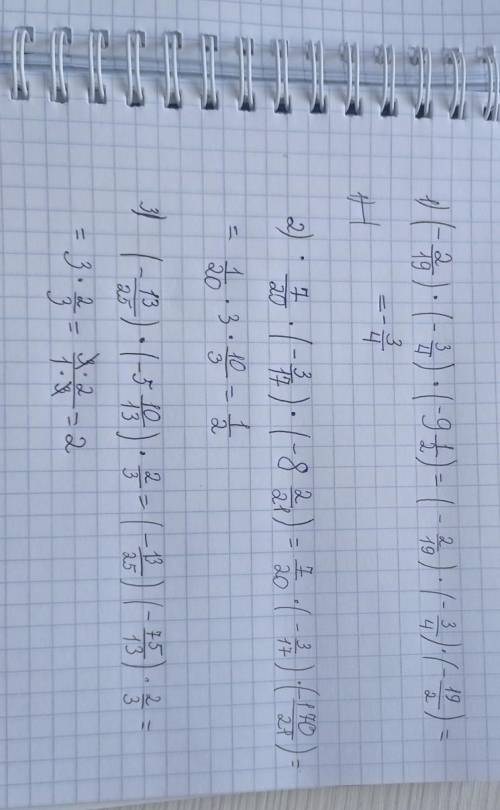 1) (-2/19) · (-3/4) · (-9 1/2) = (-2/19) · (-3/4) · (-19/2) =
= -3/4
2) · 7/20 · (-3/17) · (-8 2/21) = 7/20 · (-3/17) · (-170/21) =
= 1/20 · 3 · 10/3 = 1/2
3) (-13/25) · (-5 10/13) · 2/3 = (-13/25) (-75/13) · 2/3 =
= 3 · 2/3 = 3·2/1·3 = 2